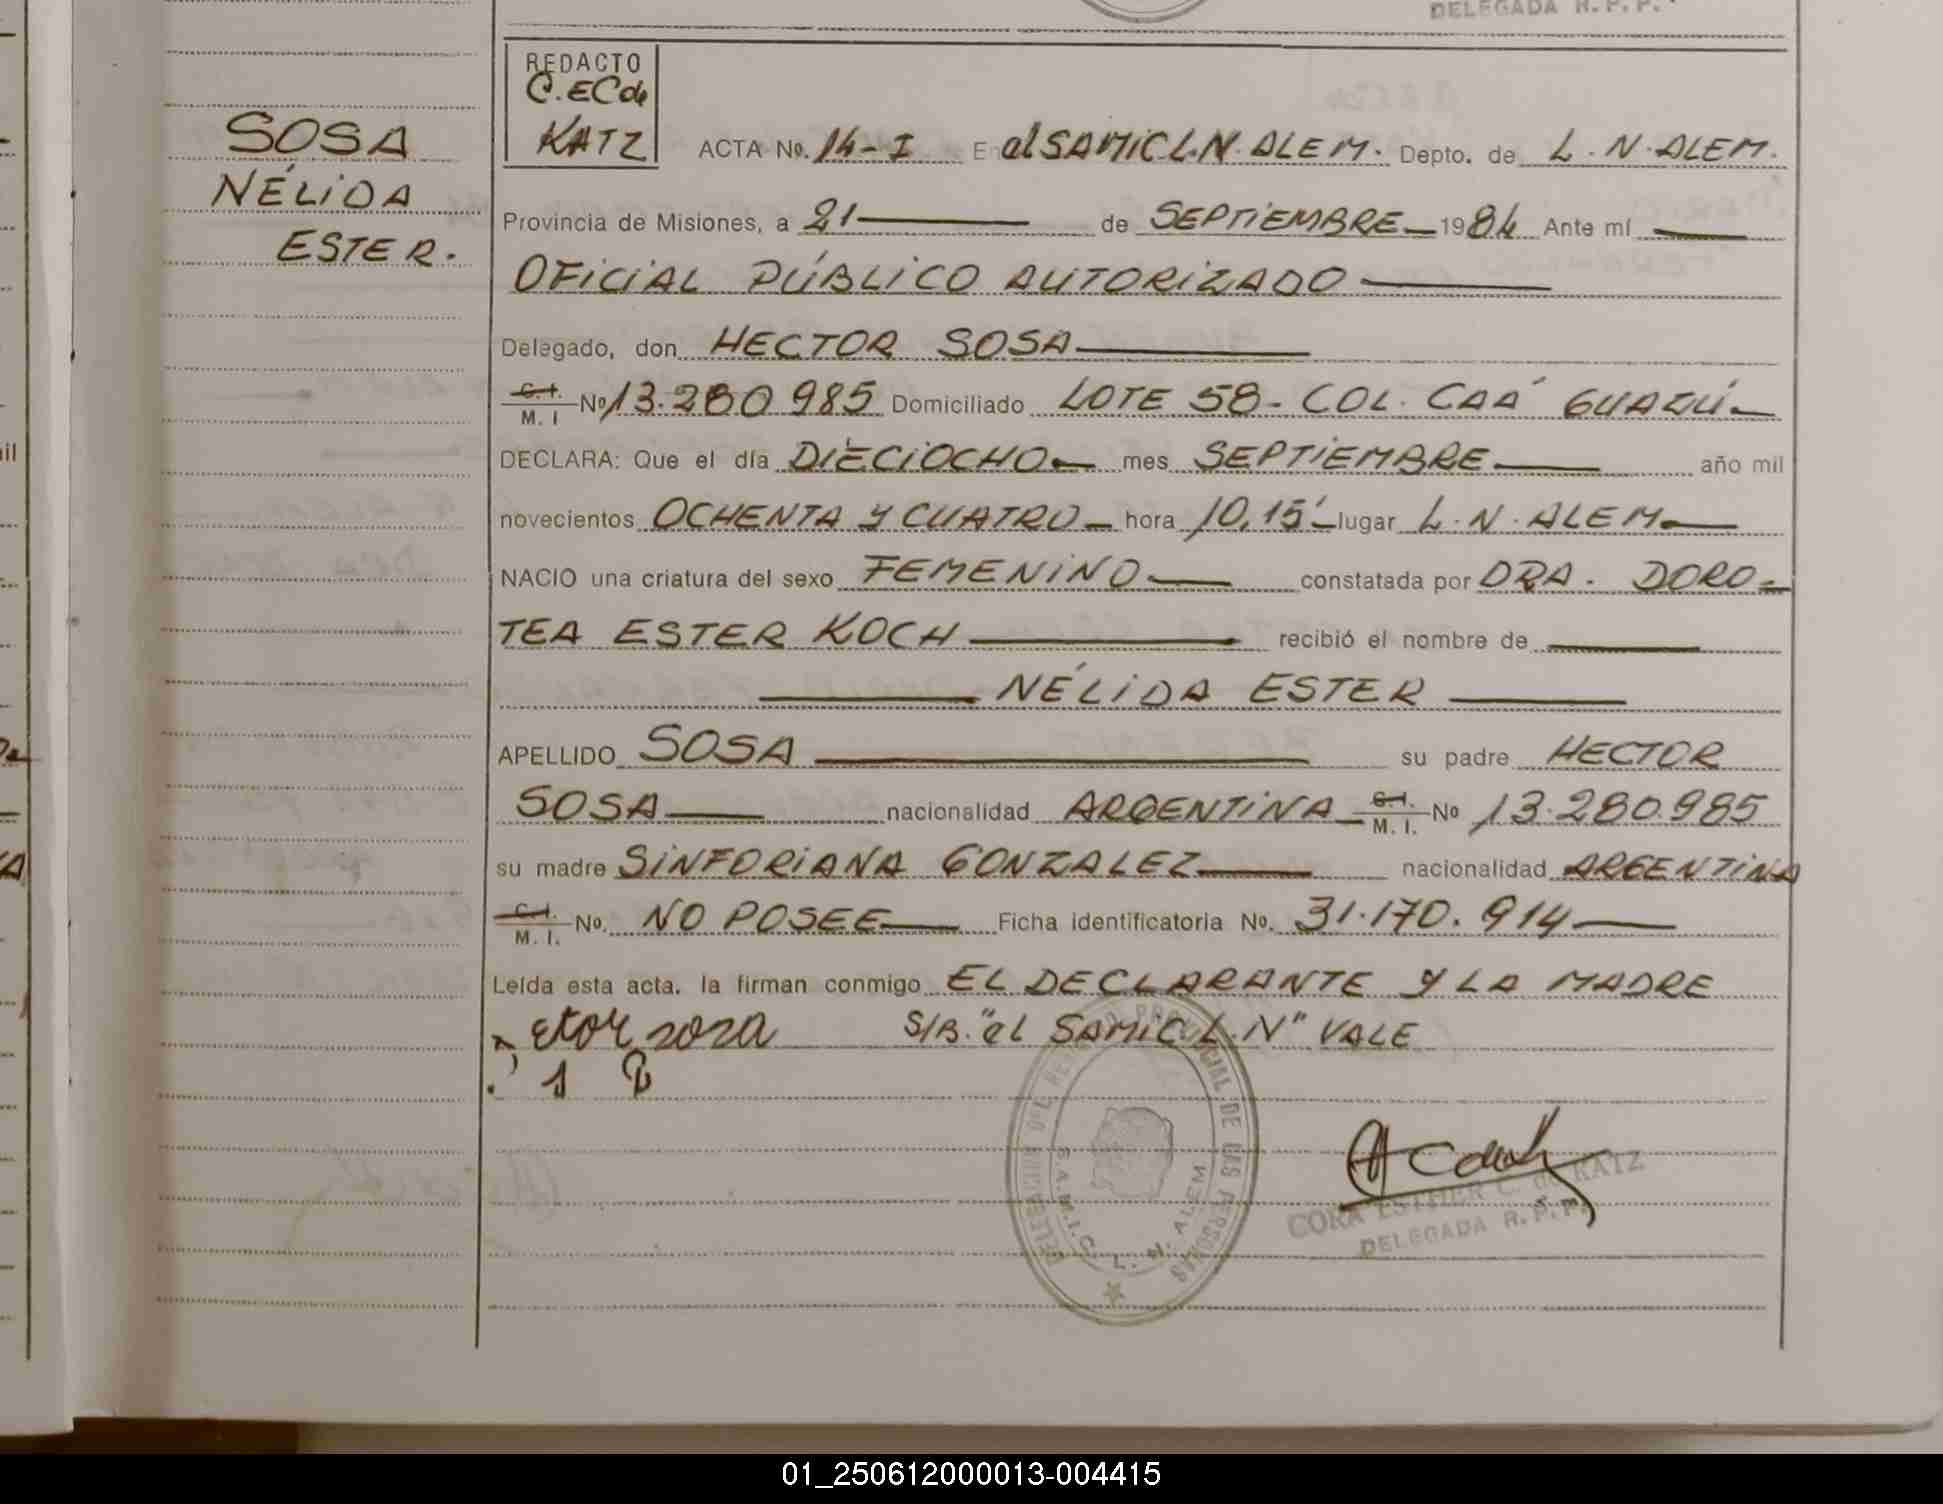 DELEGADA R.P.P.
SOSA
NÉLIDA
ESTER.
REDACTO
C. EC de
KATZ
ACTA No. 14-I En el SAMIC L.N. ALEM. Depto. de L. N. ALEM.
Provincia de Misiones, a 21 de SEPTIEMBRE 1984 Ante mí
OFICIAL PÚBLICO AUTORIZADO
Delegado, don HECTOR SOSA
C. I. M. I No 13.280 985 Domiciliado LOTE 58 - COL. CAÁ GUAZÚ
DECLARA: Que el día DIECIOCHO mes SEPTIEMBRE año mil
novecientos OCHENTA Y CUATRO hora 10,15' lugar L. N. ALEM
NACIO una criatura del sexo FEMENINO constatada por DRA. DORO-
TEA ESTER KOCH recibió el nombre de
NÉLIDA ESTER
APELLIDO SOSA su padre HECTOR
SOSA nacionalidad ARGENTINA C. I. M. I. No 13.280.985
su madre SINFORIANA GONZALEZ nacionalidad ARGENTINA
C. I. M. I. No. NO POSEE Ficha identificatoria No. 31.170.914
Leída esta acta, la firman conmigo EL DECLARANTE Y LA MADRE
sosa S/B. "el SAMIC L.N" VALE
DELEGACION DEL REGISTRO PROVINCIAL DE LAS PERSONAS
S.A.M.I.C. L. N. ALEM
CORA ESTHER C. de KATZ
DELEGADA R.P.P.
01_250612000013-004415